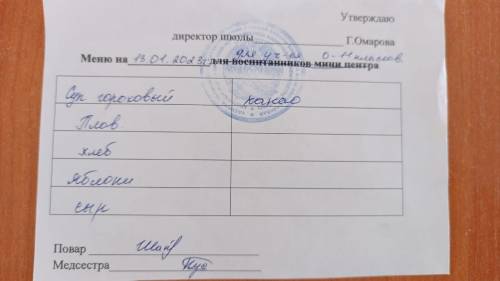 Утверждаю
директор школы Г.Омарова
Меню на 13.01.2023г для уч-ся 0-11 классов для воспитанников мини центра
Суп гороховый какао
Плов
хлеб
Яблоки
сыр
Повар
Медсестра